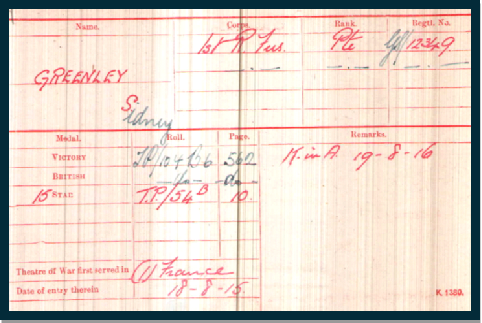 Name. Corps. Rank. Regtl. No.
GREENLEY 1st R. Fus. Pte 12349
Sidney
Medal. Roll. Page. Remarks.
VICTORY 562 K. in A. 19-8-16
BRITISH -do- -do-
15 STAR T.P./54 B 10.
Theatre of War first served in (1) France
Date of entry therein 18-8-15.
K. 1380.